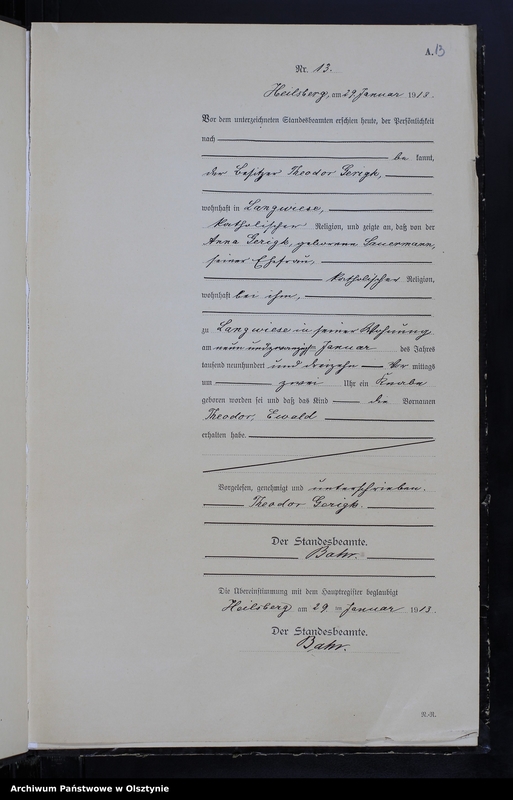 A. 13
Nr. 13.
Heilsberg, am 29. Januar 1913.
Vor dem unterzeichneten Standesbeamten erschien heute, der Persönlichkeit
nach
be kannt,
der Besitzer Theodor Gerigk,
wohnhaft in Langwiese,
katholischer Religion, und zeigte an, daß von der
Anna Gerigk, geborenen Sauermann,
seiner Ehefrau,
katholischer Religion,
wohnhaft bei ihm,
zu Langwiese in seiner Wohnung
am neun und zwanzigsten Januar des Jahres
tausend neunhundert und dreizehn Vor mittags
um zwei Uhr ein Knabe
geboren worden sei und daß das Kind die Vornamen
Theodor, Ewald
erhalten habe.
Vorgelesen, genehmigt und unterschrieben.
Theodor Gerigk.
Der Standesbeamte.
Bahr.
Die Übereinstimmung mit dem Hauptregister beglaubigt
Heilsberg am 29. Januar 1913.
Der Standesbeamte.
Bahr.
N.-R.
Archiwum Państwowe w Olsztynie